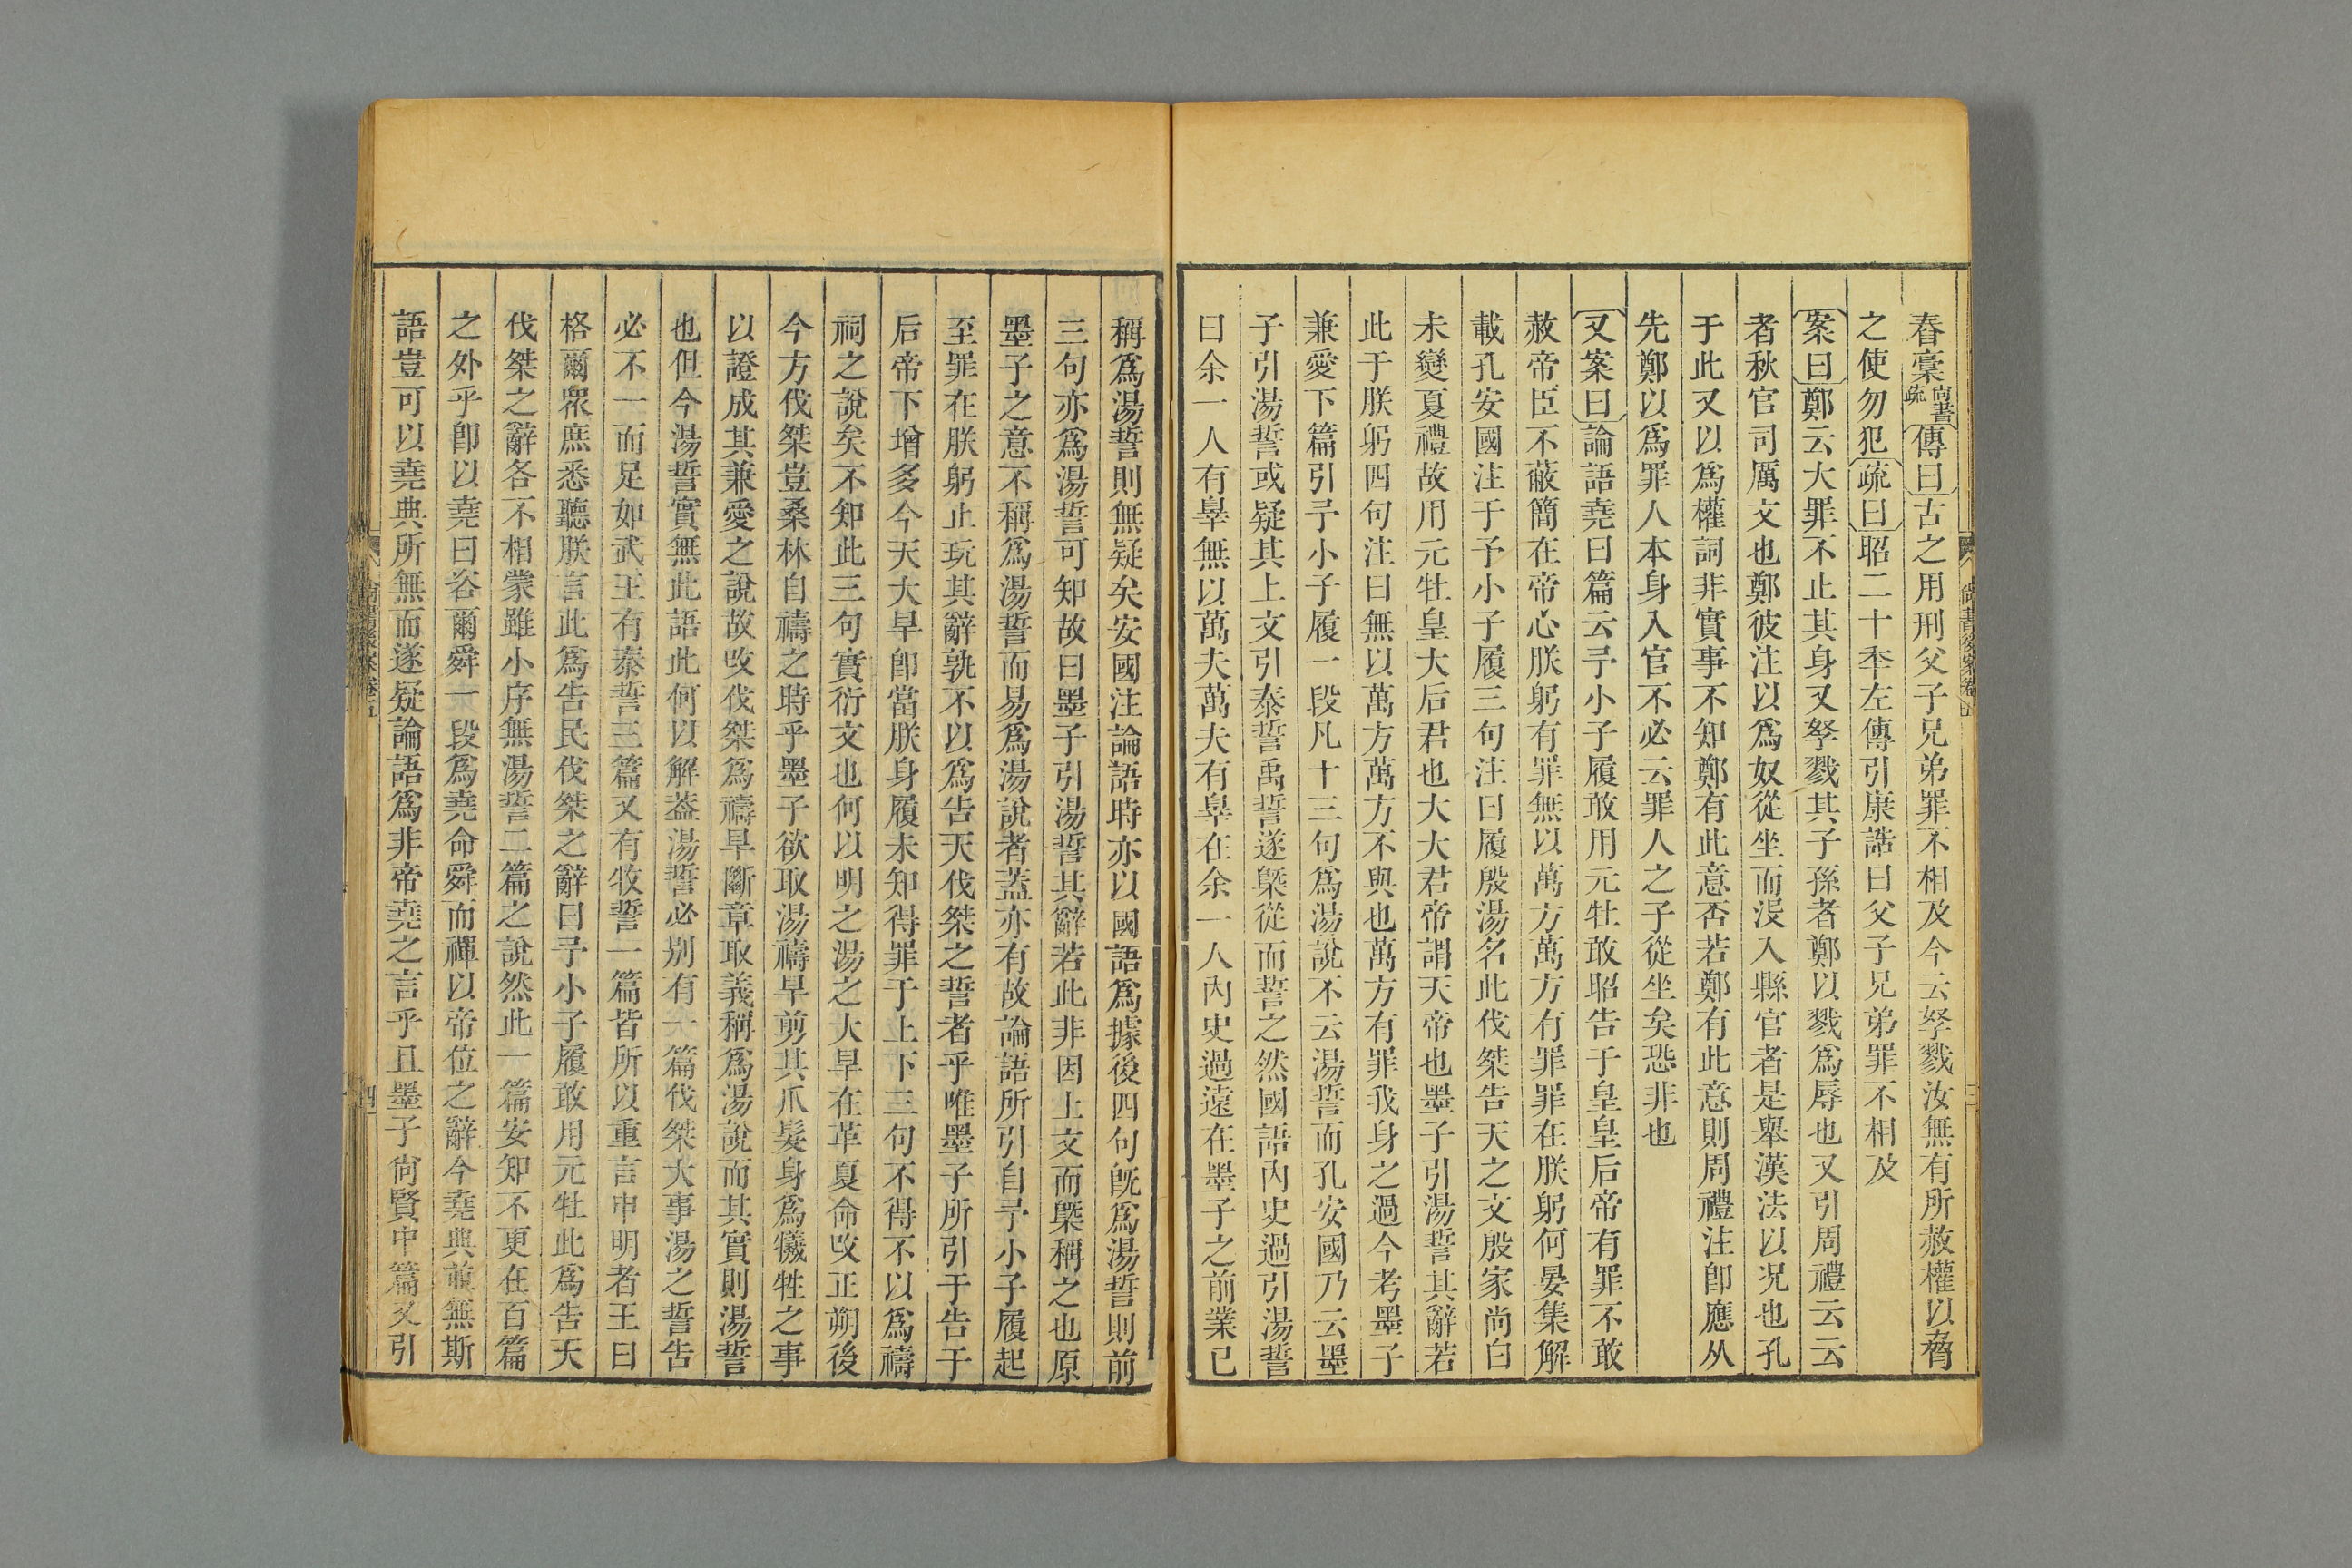 舂槀尚書疏傳曰古之用刑父子兄弟罪不相及今云孥戮汝無有所赦權以脅
之使勿犯疏曰昭二十秊左傳引康誥曰父子兄弟罪不相及
案曰鄭云大罪不止其身又孥戮其子孫者鄭以戮爲辱也又引周禮云云
者秋官司厲文也鄭彼注以爲奴從坐而沒入縣官者是舉漢法以况也孔
于此又以爲權詞非實事不知鄭有此意否若鄭有此意則周禮注卽應从
先鄭以爲罪人本身入官不必云罪人之子從坐矣恐非也
又案曰論語堯曰篇云予小子履敢用元牡敢昭告于皇皇后帝有罪不敢
赦帝臣不蔽簡在帝心朕躬有罪無以萬方萬方有罪罪在朕躬何晏集解
載孔安國注于予小子履三句注曰履殷湯名此伐桀告天之文殷家尚白
未變夏禮故用元牡皇大后君也大大君帝謂天帝也墨子引湯誓其辭若
此于朕躬四句注曰無以萬方萬方不與也萬方有罪我身之過今考墨子
兼愛下篇引予小子履一段凡十三句爲湯說不云湯誓而孔安國乃云墨
子引湯誓或疑其上文引泰誓禹誓遂槩從而誓之然國語內史過引湯誓
曰余一人有辠無以萬夫萬夫有辠在余一人內史過遠在墨子之前業已
稱爲湯誓則無疑矣安國注論語時亦以國語爲據後四句旣爲湯誓則前
三句亦爲湯誓可知故曰墨子引湯誓其辭若此非因上文而槩稱之也原
墨子之意不稱爲湯誓而易爲湯說者蓋亦有故論語所引自予小子履起
至罪在朕躬止玩其辭孰不以爲告天伐桀之誓者乎唯墨子所引于告于
后帝下增多今天大旱卽當朕身履未知得罪于上下三句不得不以爲禱
祠之說矣不知此三句實衍文也何以明之湯之大旱在革夏命改正朔後
今方伐桀豈桑林自禱之時乎墨子欲取湯禱旱剪其爪髮身爲犧牲之事
以證成其兼愛之說故改伐桀爲禱旱斷章取義稱爲湯說而其實則湯誓
也但今湯誓實無此語此何以解葢湯誓必别有一篇伐桀大事湯之誓告
必不一而足如武王有泰誓三篇又有牧誓一篇皆所以重言申明者王曰
格爾眾庶悉聽朕言此爲告民伐桀之辭曰予小子履敢用元牡此爲告天
伐桀之辭各不相蒙雖小序無湯誓二篇之說然此一篇安知不更在百篇
之外乎卽以堯曰咨爾舜一段爲堯命舜而禪以帝位之辭今堯典並無斯
語豈可以堯典所無而遂疑論語爲非帝堯之言乎且墨子尚賢中篇又引